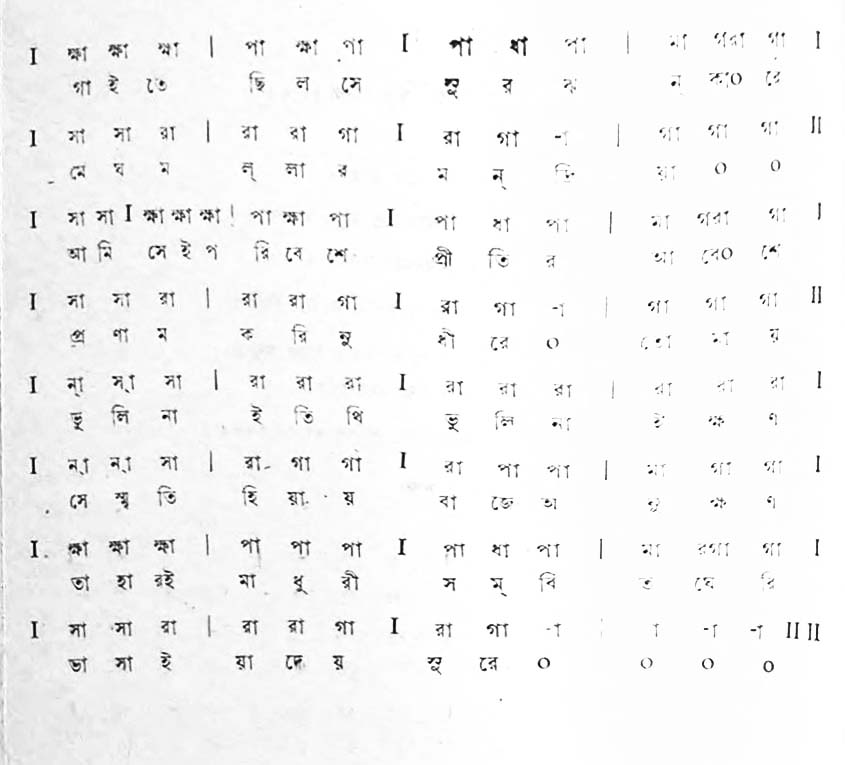 I ক্ষা ক্ষা ক্ষা | পা ক্ষা পা I পা ধা পা | মা গরা গা I
গা ই তে ছি ল সে সু র ঝ ন্ কা০ রে
I সা সা রা | রা রা গা I রা গা -া | গা গা গা II
মে ঘ ম ল্ লা র ম ন্ দ্রি য়া ০ ০
I সা সা I ক্ষা ক্ষা ক্ষা | পা ক্ষা পা I পা ধা পা | মা গরা গা I
আ মি সে ই প রি বে শে প্রী তি র আ বে০ শে
I সা সা রা | রা রা গা I রা গা -া | গা গা গা II
প্র ণা ম ক রি নু ধী রে ০ তো মা য়
I ন্া স্া সা | রা রা রা I রা রা রা | রা রা রা I
ভু লি না ই তি থি ভু লি না ই ক্ষ ণ
I ন্া ন্া সা | রা গা গা I রা পা পা | মা গা গা I
সে স্মৃ তি হি য়া য় বা জে অ নু ক্ষ ণ
I ক্ষা ক্ষা ক্ষা | পা পা পা I পা ধা পা | মা রগা গা I
তা হা রই মা ধু রী স ম্ বি ত ঘে রি
I সা সা রা | রা রা গা I রা গা -া | া -া -া II II
ভা সা ই য়া দে য় সু রে ০ ০ ০ ০